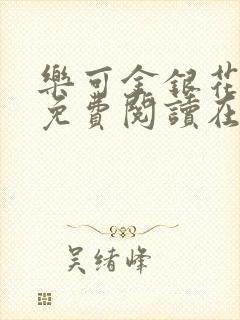 樂可金銀花
免費閱讀在
吴绪峰